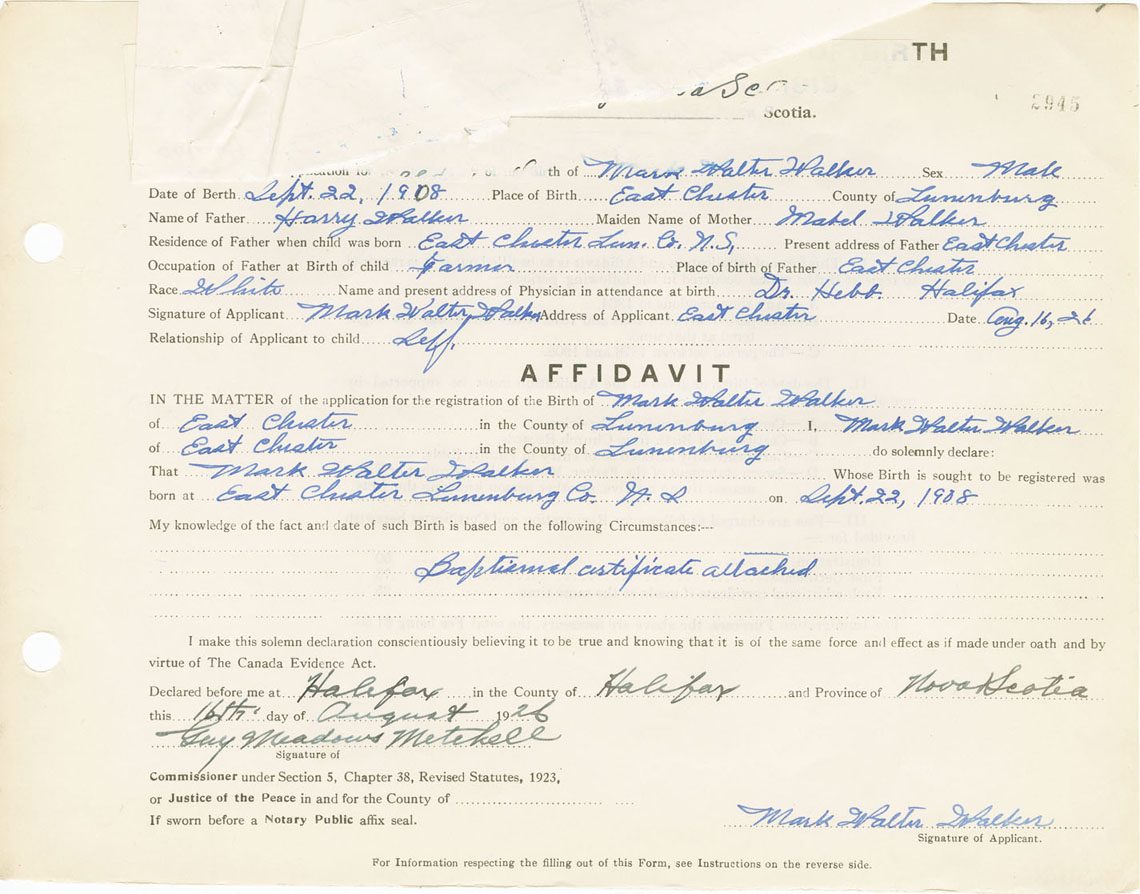 TH
Scotia.
2945
th of Mark Walter Walker Sex Male
Date of Berth Sept. 22, 1908 Place of Birth East Chester County of Lunenburg
Name of Father Harry Walker Maiden Name of Mother Mabel Walker
Residence of Father when child was born East Chester Lun. Co. N.S, Present address of Father East Chester
Occupation of Father at Birth of child Farmer Place of birth of Father East Chester
Race White Name and present address of Physician in attendance at birth Dr. Hebb. Halifax
Signature of Applicant Mark Walter Walker Address of Applicant East Chester Date Aug. 16, 26
Relationship of Applicant to child Self.
AFFIDAVIT
IN THE MATTER of the application for the registration of the Birth of Mark Walter Walker
of East Chester in the County of Lunenburg I, Mark Walter Walker
of East Chester in the County of Lunenburg do solemnly declare:
That Mark Walter Walker Whose Birth is sought to be registered was
born at East Chester Lunenburg Co. N. S on Sept. 22, 1908
My knowledge of the fact and date of such Birth is based on the following Circumstances:--
Baptismal certificate attached
I make this solemn declaration conscientiously believing it to be true and knowing that it is of the same force and effect as if made under oath and by
virtue of The Canada Evidence Act.
Declared before me at Halifax in the County of Halifax and Province of Nova Scotia
this 16th day of August 1926
Guy Meadows Metchell
Signature of
Commissioner under Section 5, Chapter 38, Revised Statutes, 1923,
or Justice of the Peace in and for the County of
If sworn before a Notary Public affix seal.
Mark Walter Walker
Signature of Applicant.
For Information respecting the filling out of this Form, see Instructions on the reverse side.